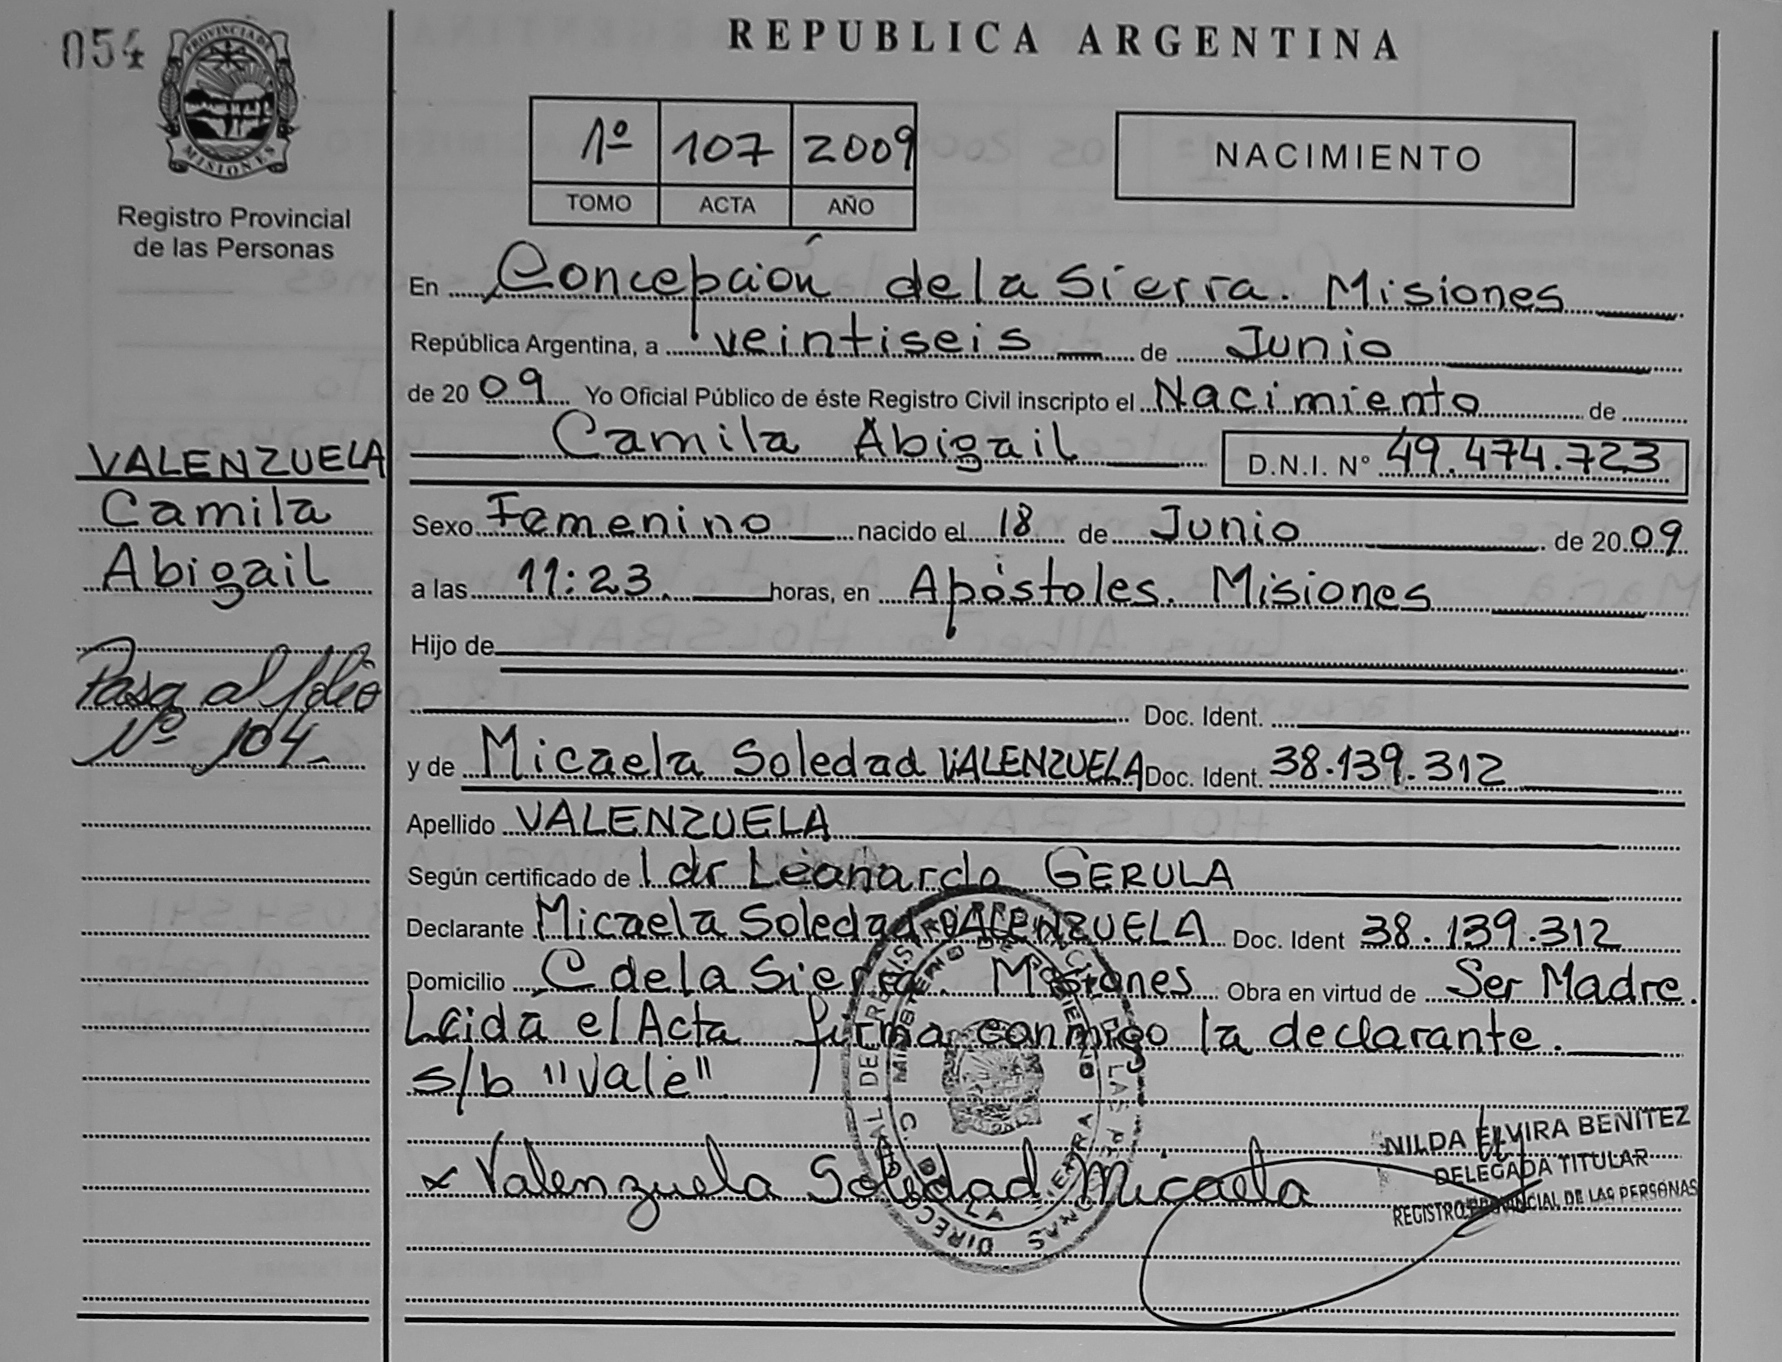 054
PROVINCIA DE
MISIONES
Registro Provincial
de las Personas
REPUBLICA ARGENTINA
1º 107 2009
TOMO ACTA AÑO
NACIMIENTO
En Concepción de la Sierra. Misiones
República Argentina, a veintiseis de Junio
de 2009 Yo Oficial Público de éste Registro Civil inscripto el Nacimiento de
Camila Abigail D.N.I. Nº 49.474.723
VALENZUELA
Camila
Abigail
Pasa al folio
Nº 104
Sexo Femenino nacido el 18 de Junio de 2009
a las 11:23. horas, en Apóstoles. Misiones
Hijo de
Doc. Ident.
y de Micaela Soledad VALENZUELA Doc. Ident. 38.139.312
Apellido VALENZUELA
Según certificado de l dr Leonardo GERULA
Declarante Micaela Soledad VALENZUELA Doc. Ident 38.139.312
Domicilio C de la Sierra. Misiones Obra en virtud de Ser Madre.
Leida el Acta firma conmigo la declarante.
s/b "Vale"
x Valenzuela Soledad Micaela
NILDA ELVIRA BENITEZ
DELEGADA TITULAR
REGISTRO PROVINCIAL DE LAS PERSONAS